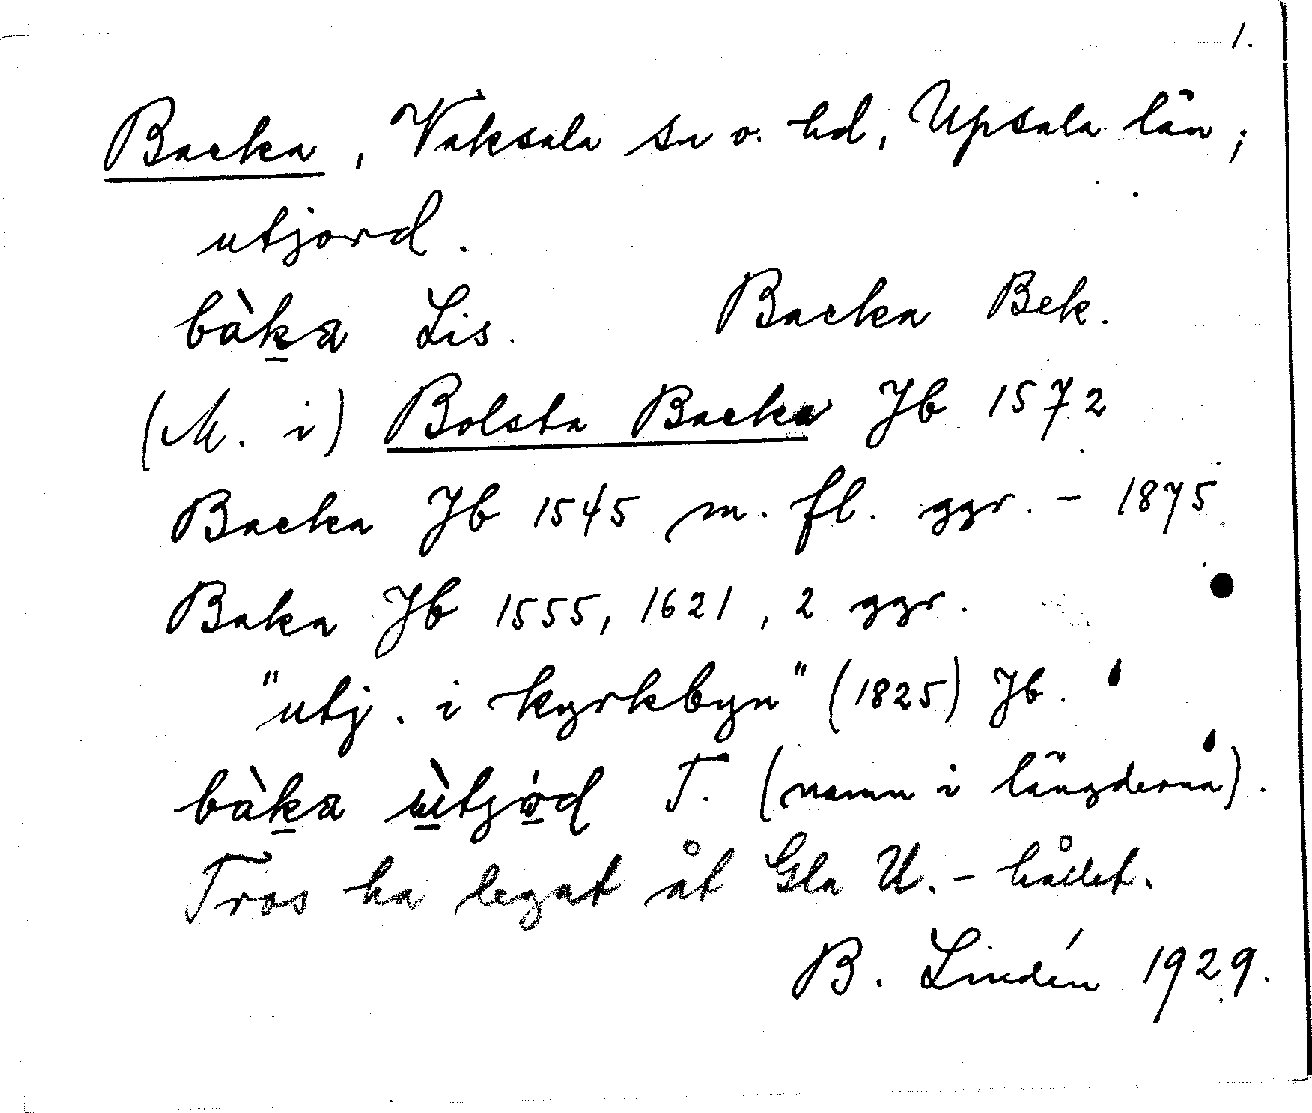 1.
Backa, Vaksala sn o. hd, Upsala län;
utjord.
bàka Lis. Backa Bek.
(M. i) Bolsta Backa Jb 1572
Backa Jb 1545 m. fl. ggr. – 1875
Baka Jb 1555, 1621, 2 ggr.
"utj. i kyrkbyn" (1825) Jb.
bàka ùtjód T. (namn i längderna).
Tros ha legat åt Gla U.-hållet.
B. Lindén 1929.